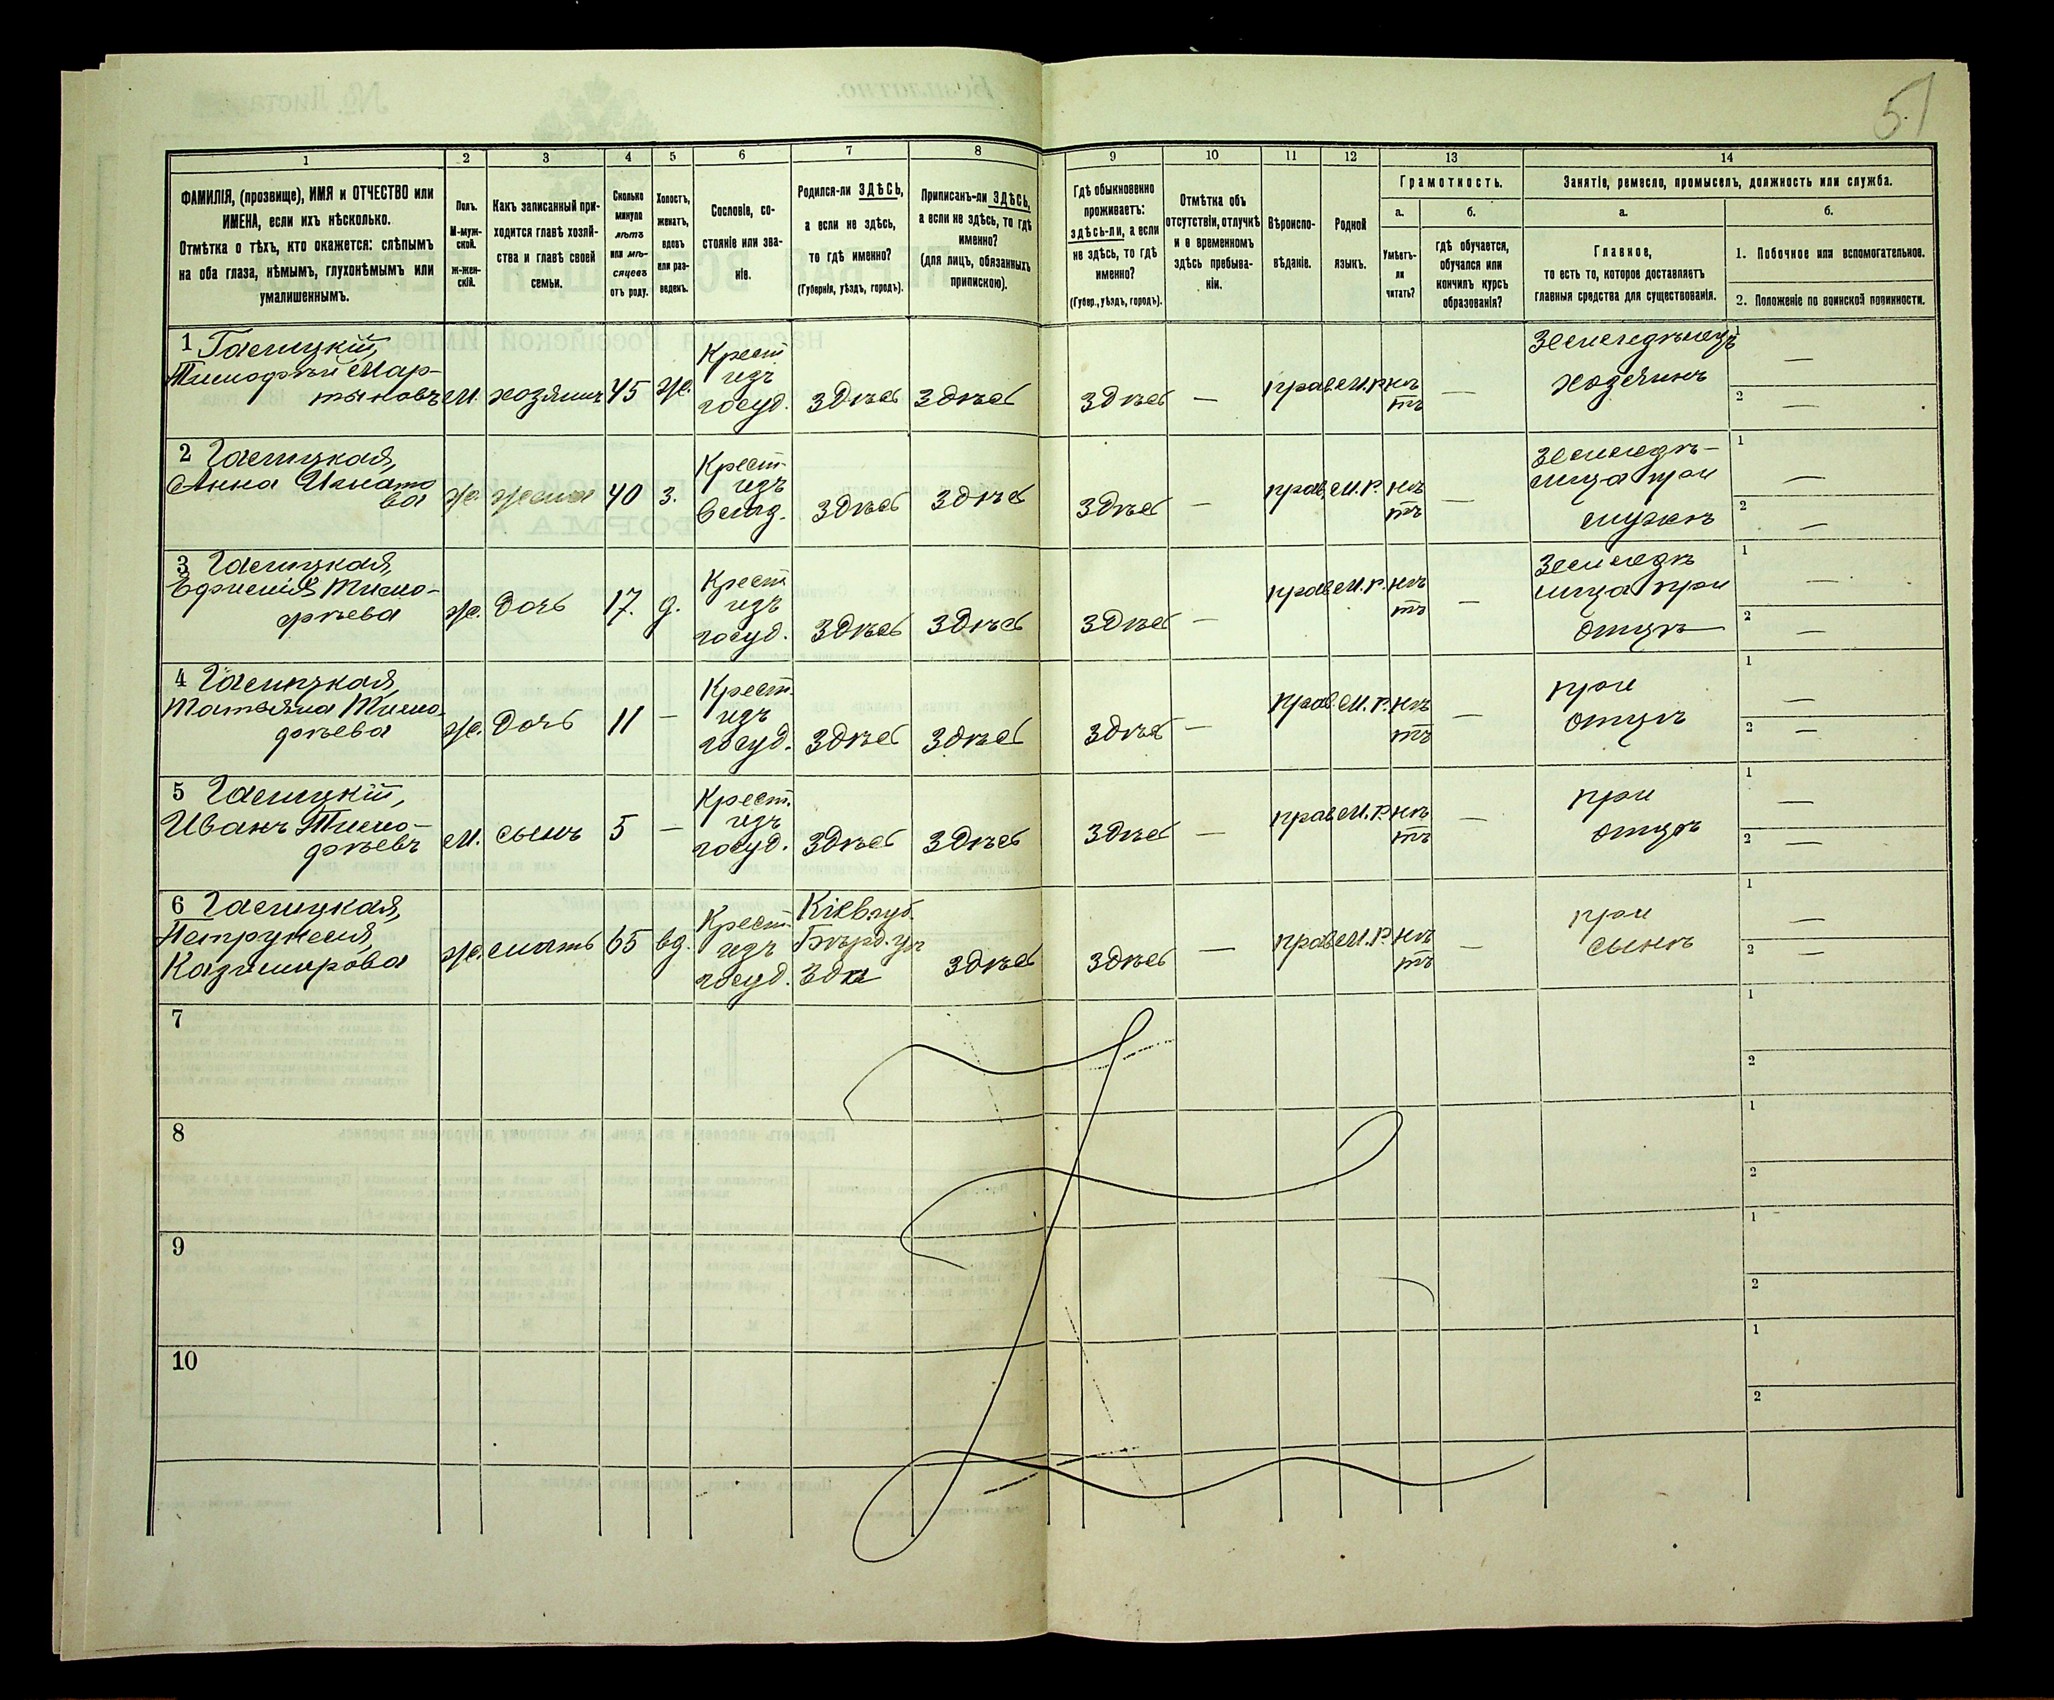 51
1 2 3 4 5 6 7 8 9 10 11 12 13 14
ФАМИЛІЯ, (прозвище), ИМЯ и ОТЧЕСТВО или
ИМЕНА, если ихъ нѣсколько.
Отмѣтка о тѣхъ, кто окажется: слѣпымъ
на оба глаза, нѣмымъ, глухонѣмымъ или
умалишеннымъ.
Полъ.
М-муж-
ской.
ж-жен-
скій.
Какъ записанный при-
ходится главѣ хозяй-
ства и главѣ своей
семьи.
Сколько
минуло
лѣтъ
или мѣ-
сяцевъ
отъ роду.
Холостъ,
женатъ,
вдовъ
или раз-
веденъ.
Сословіе, со-
стояніе или зва-
ніе.
Родился-ли ЗДѢСЬ,
а если не здѣсь,
то гдѣ именно?
(Губернія, уѣздъ, городъ).
Приписанъ-ли ЗДѢСЬ,
а если не здѣсь, то гдѣ
именно?
(для лицъ, обязанныхъ
припискою).
Гдѣ обыкновенно
проживаетъ:
здѣсь-ли, а если
не здѣсь, то гдѣ
именно?
(Губер., уѣздъ, городъ).
Отмѣтка объ
отсутствіи, отлучкѣ
и о временномъ
здѣсь пребыва-
ніи.
Вѣроиспо-
вѣданіе.
Родной
языкъ.
Грамотность.
а.
Умѣетъ-
ли
читать?
б.
гдѣ обучается,
обучался или
кончилъ курсъ
образованія?
Занятіе, ремесло, промыселъ, должность или служба.
а.
Главное,
то есть то, которое доставляетъ
главныя средства для существованія.
б.
1. Побочное или вспомогательное.
2. Положеніе по воинской повинности.
1 Галицкій,
Тимофѣй Мар-
тыновъ М. хозяинъ 45 ж. Крест. изъ госуд. здѣсь здѣсь здѣсь — прав. М.Р. нѣтъ — Земледѣлецъ хозяинъ 1 — 2 —
2 Галицкая,
Анна Игнато
ва ж. жена 40 з. Крест. изъ влад. здѣсь здѣсь здѣсь — прав. М.Р. нѣтъ — земледѣ-лица при мужѣ 1 — 2 —
3 Галицкая,
Ефимія Тимо-
фѣева ж. дочь 17. д. Крест. изъ госуд. здѣсь здѣсь здѣсь — прав. М.Р. нѣтъ — земледѣлица при отцѣ 1 — 2 —
4 Галицкая,
Татьяна Тимо-
фѣева ж. дочь 11 — Крест. изъ госуд. здѣсь здѣсь здѣсь — прав. М.Р. нѣтъ — при отцѣ 1 — 2 —
5 Галицкій,
Иванъ Тимо-
фѣевъ М. сынъ 5 — Крест. изъ госуд. здѣсь здѣсь здѣсь — прав. М.Р. нѣтъ — при отцѣ 1 — 2 —
6 Галицкая,
Казимирова ж. мать 65 вд. Крест. изъ госуд. Кіев. губ. здѣсь здѣсь — прав. М.Р. нѣтъ — при сынѣ 1 — 2 —
7 1 2
8 1 2
9 1 2
10 1 2